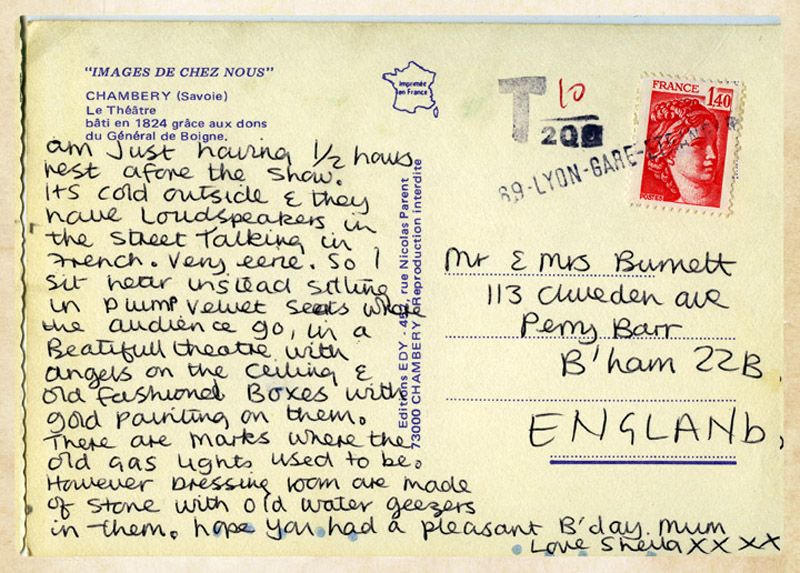 "IMAGES DE CHEZ NOUS"
CHAMBERY (Savoie)
Le Théâtre
bâti en 1824 grâce aux dons
du Général de Boigne.
am Just having 1/2 hours
rest afore the show.
Its cold outside & they
have Loudspeakers in
the street Talking in
French. Very eerie. So I
sit hear instead sitting
in plump velvet seats where
the audience go, in a
Beatifull theatre with
angels on the ceiling &
old fashioned Boxes with
gold painting on them.
There are marks where the
old gas lights used to be.
However Dressing room are made
of stone with old water geezers
in them. hope you had a pleasant B'day. Mum
Love Sheila XX XX
Editions EDY - 452, rue Nicolas Parent
73000 CHAMBERY Reproduction interdite
imprimée
en France
T 10
200
69-LYON-GARE-
FRANCE
1,40
POSTES
Mr & Mrs Burnett
113 Cliveden ave
Perry Barr
B'ham 22B
ENGLAND,